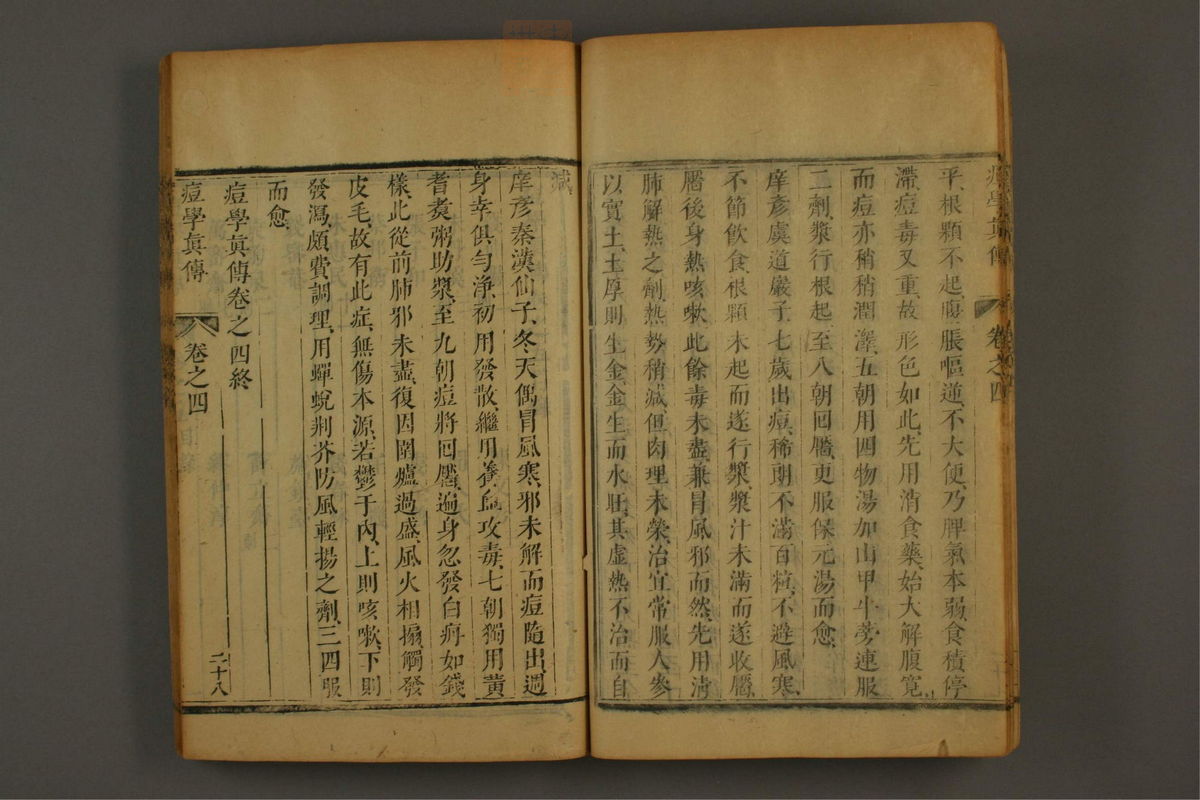 痘學眞傳 卷之四
平、根顆不起、腹脹嘔逆、不大便、乃脾氣本弱、食積停
滯、痘毒又重、故形色如此、先用消食藥、始大解腹寛、
而痘亦稍稍潤澤、五朝用四物湯加山甲牛蒡、連服
二劑、漿行根起、至八朝回靨、更服保元湯而愈、
庠彥虞道巖子、七歲出痘、稀朗不滿百粒、不避風寒、
不節飲食、根顆未起而遂行漿、漿汁未滿而遂收靨、
靨後身熱咳嗽、此餘毒未盡、兼冒風邪而然、先用淸
肺解熱之劑、熱勢稍減、但肉理未榮、治宜常服人參
以實土、土厚則生金、金生而水旺、其虛熱不治而自
減、
庠彥秦漢仙子、冬天偶冒風寒、邪未解而痘隨出、遍
身幸俱勻淨、初用發散、繼用養血攻毒、七朝獨用黃
耆煑粥助漿、至九朝痘將回靨、遍身忽發白㾦如錢
樣、此從前肺邪未盡、復因圍爐過盛、風火相搦、觸發
皮毛、故有此症、無傷本源、若鬱于內、上則咳嗽、下則
發瀉、頗費調理、用蟬蛻荆芥防風輕揚之劑、三四服
而愈、
痘學眞傳卷之四終
痘學眞傳 卷之四 二十八